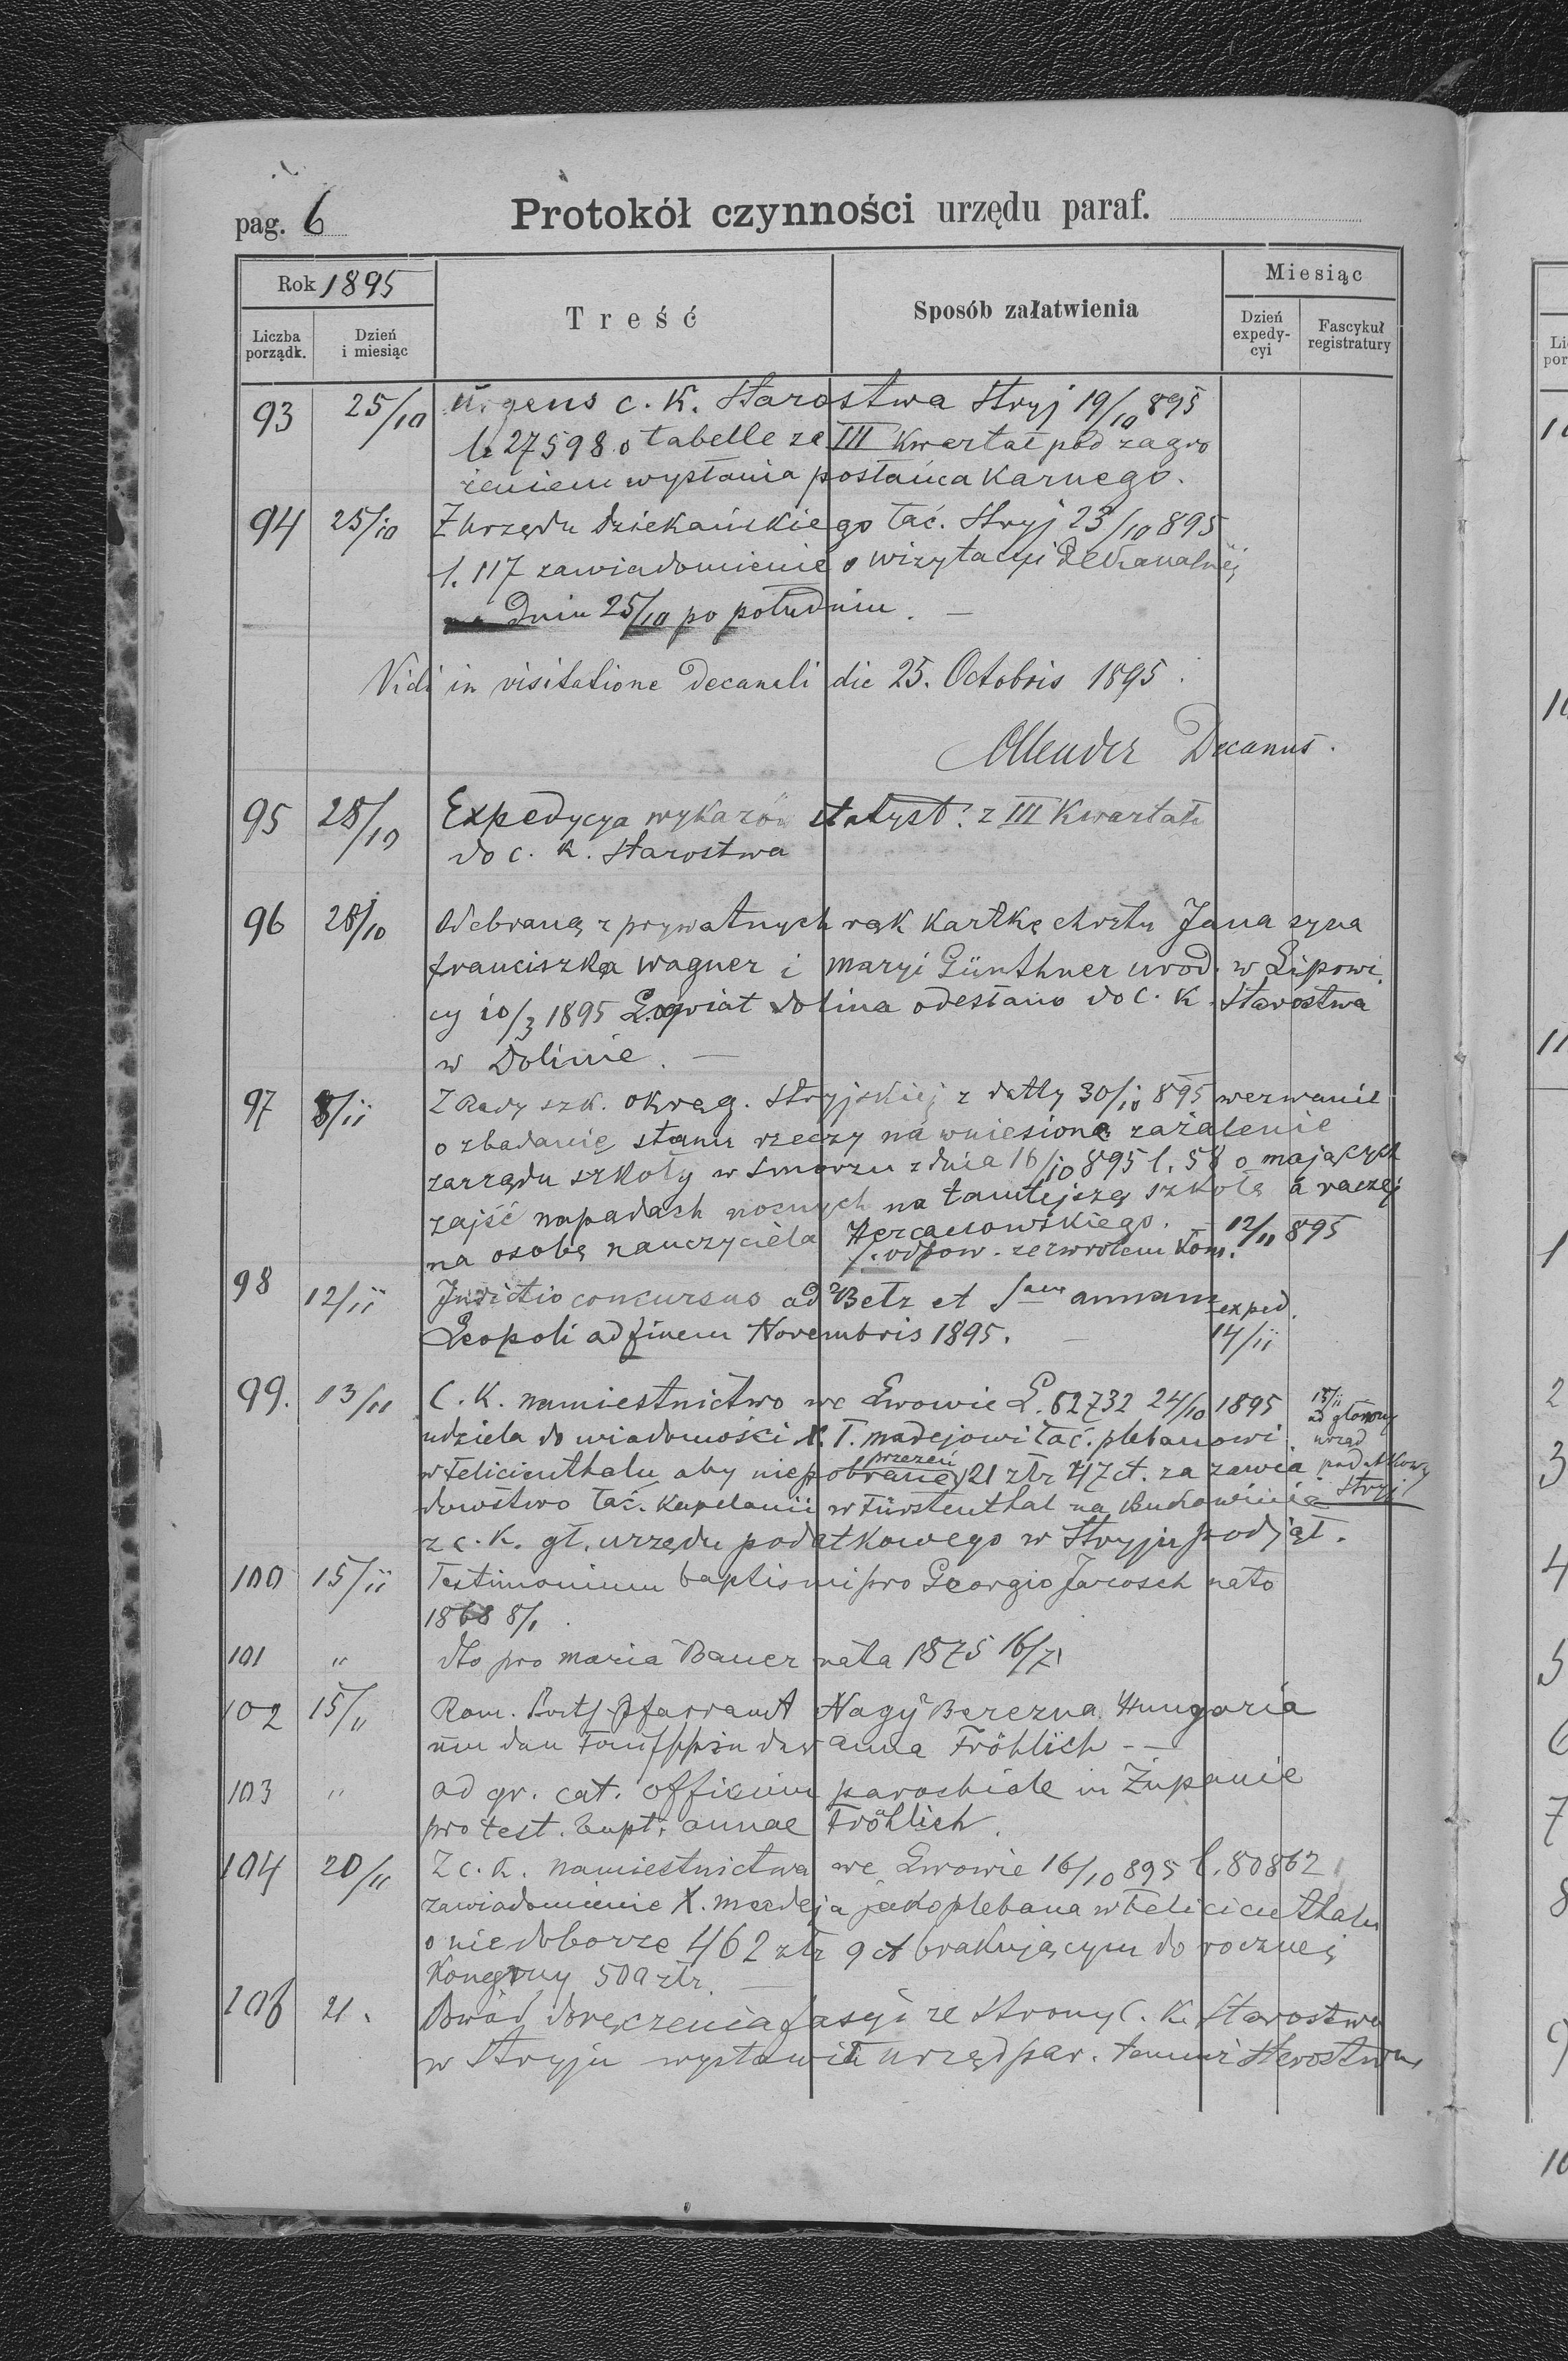 pag. 6 Protokół czynności urzędu paraf.
Rok 1895
Treść
Sposób załatwienia
Miesiąc
Liczba porządk.
Dzień i miesiąc
Dzień expedy-cyi
Fascykuł registratury
93 25/10 Urgens c. k. Starostwa Stryj 19/10 895
l. 27598 o tabelle za III Kwartał pod zagro
żeniem wysłania posłańca karnego.
94 25/10 Z urzędu dziekańskiego łać. Stryj 23/10 895
l. 117 zawiadomienie o wizytacyi Dekanalnej
Dniu 25/10 po południu. —
Vidi in visitatione Decanali die 25. Octobris 1895.
Decanus.
95 28/10 Expedycya wykazów statyst. z III Kwartału
do c. k. Starostwa
96 28/10 Odebraną z prywatnych rąk kartkę chrztu Jana syna
Franciszka Wagner i Maryi Günthner urod. w Lipowi
cy 10/3 1895 powiat Dolina odesłano do c. k. Starostwa
w Dolinie. —
97 8/11 Z Rady szk. okręg. Stryjskiej z datty 30/10 895 wezwanie
o zbadanie stanu rzeczy na wniesione zażalenie
zarządu szkoły w Smorzu z dnia 16/10 895 l. 58 o mających
zajść napadach nocnych na tamtejszą szkołę a raczej
na osobę nauczyciela
odpow. ze zwrotem kom. 12/11 895
98 12/11 Indictio concursus ad Betz et annam
Leopoli ad finem Novembris 1895. —
exped.
14/11
99. 13/11 C. K. namiestnictwo we Lwowie L. 82732 24/10 1895
udziela do wiadomości X. T. Madejowi łać. plebanowi
w Felicienthalu, aby niepobrane przezeń 21 złr 47 ct. za zawia
dowstwo łać. Kapelanii w Fürstenthal na Bukowinie
z c. k. gł. urzędu podatkowego w Stryju podjął.
15/11
ad główny
urząd
podatkowy
Stryj
100 15/11 Testimonium baptismi pro Georgio Jarosch nato
1868 8/1.
101 " dto pro Maria Bauer nata 1875 16/
102 15/11 Rom. Kath. Pfarramt Nagy Berezna Hungaria
um den Taufschein der Anna Fröhlich —
103 " ad gr. cat. officium parochiale in Żupanie
pro test. bapt. Annae Fröhlich.
104 20/11 Z c. k. namiestnictwa we Lwowie 16/10 895 l. 80862
zawiadomienie X. Madeja jako plebana w Felicienthalu
o niedoborze 462 złr 9 ct brakującym do rocznej
Kongruy 500 złr. —
106 21. Dowód doręczenia fasyi ze strony C. K. Starostwa
w Stryju wystawił urząd par. temuż Starostwu